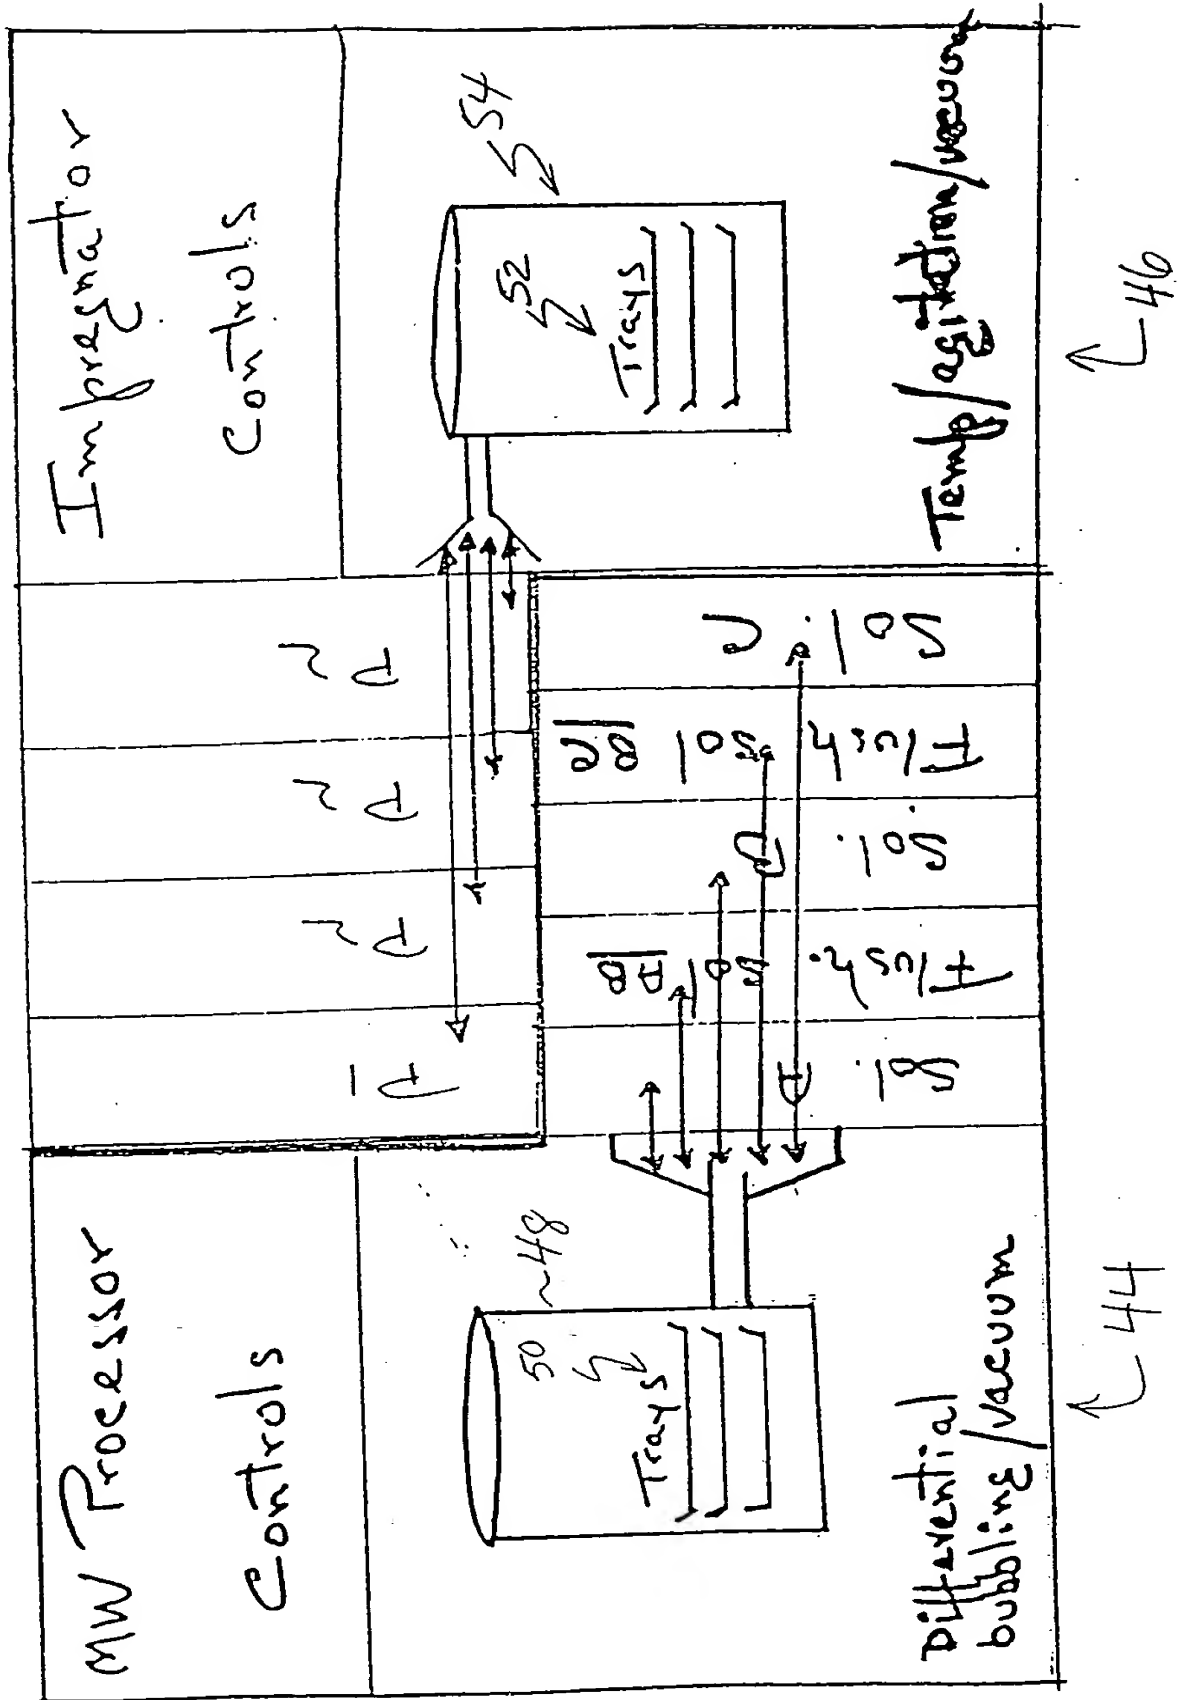 MW Processor
Controls
50
~48
Trays
Differential
bubbling/vacuum
44
Sol.
A
Flush.
Sol
AB
Sol.
B
Flush
Sol
BC
Sol.
C
P1
P2
P2
P2
Impregnator
Controls
54
52
Trays
Temp/agitation/vacuum
46